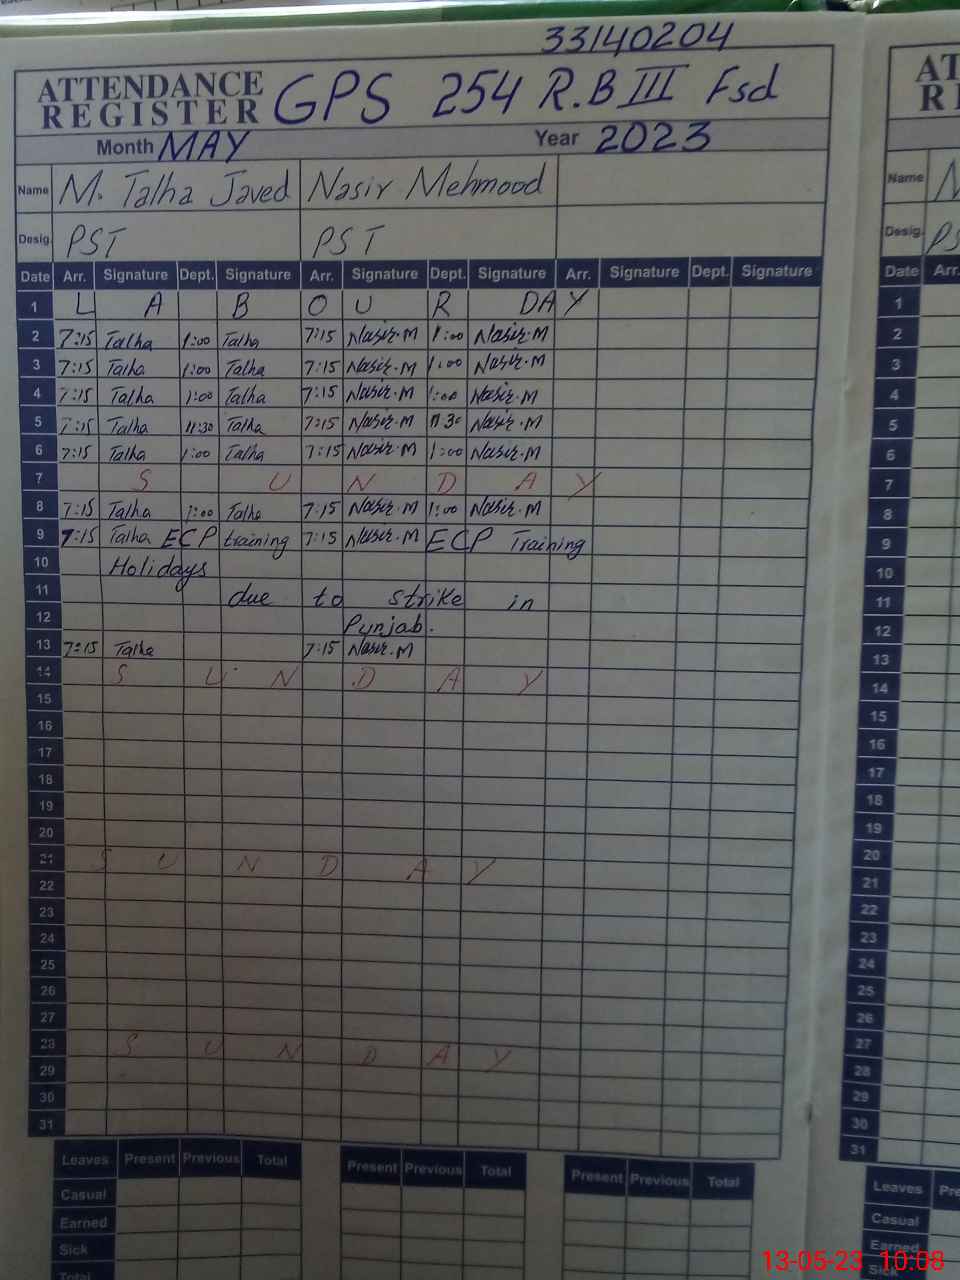 33140204
ATTENDANCE REGISTER GPS 254 R.B III Fsd
Month MAY Year 2023
Name M. Talha Javed Nasir Mehmood
Desig. PST PST
Date Arr. Signature Dept. Signature Arr. Signature Dept. Signature Arr. Signature Dept. Signature
1 L A B O U R DAY
2 7:15 Talha 1:00 Talha 7:15 Nasir.M 1:00 Nasir.M
3 7:15 Talha 1:00 Talha 7:15 Nasir.M 1:00 Nasir.M
4 7:15 Talha 1:00 Talha 7:15 Nasir.M 1:00 Nasir.M
5 7:15 Talha 11:30 Talha 7:15 Nasir.M 11:30 Nasir.M
6 7:15 Talha 1:00 Talha 7:15 Nasir.M 1:00 Nasir.M
7 S U N D A Y
8 7:15 Talha 1:00 Talha 7:15 Nasir.M 1:00 Nasir.M
9 7:15 Talha ECP training 7:15 Nasir.M ECP Training
10 Holidays
11 due to strike in
12 Punjab.
13 7:15 Talha 7:15 Nasir.M
14 S U N D A Y
15
16
17
18
19
20
21 S U N D A Y
22
23
24
25
26
27
28 S U N D A Y
29
30
31
Leaves Present Previous Total Present Previous Total Present Previous Total
Casual
Earned
Sick
Total
Name
Desig.
Date Arr.
1
2
3
4
5
6
7
8
9
10
11
12
13
14
15
16
17
18
19
20
21
22
23
24
25
26
27
28
29
30
31
Leaves
Casual
Earned
Sick
13-05-23 10:08